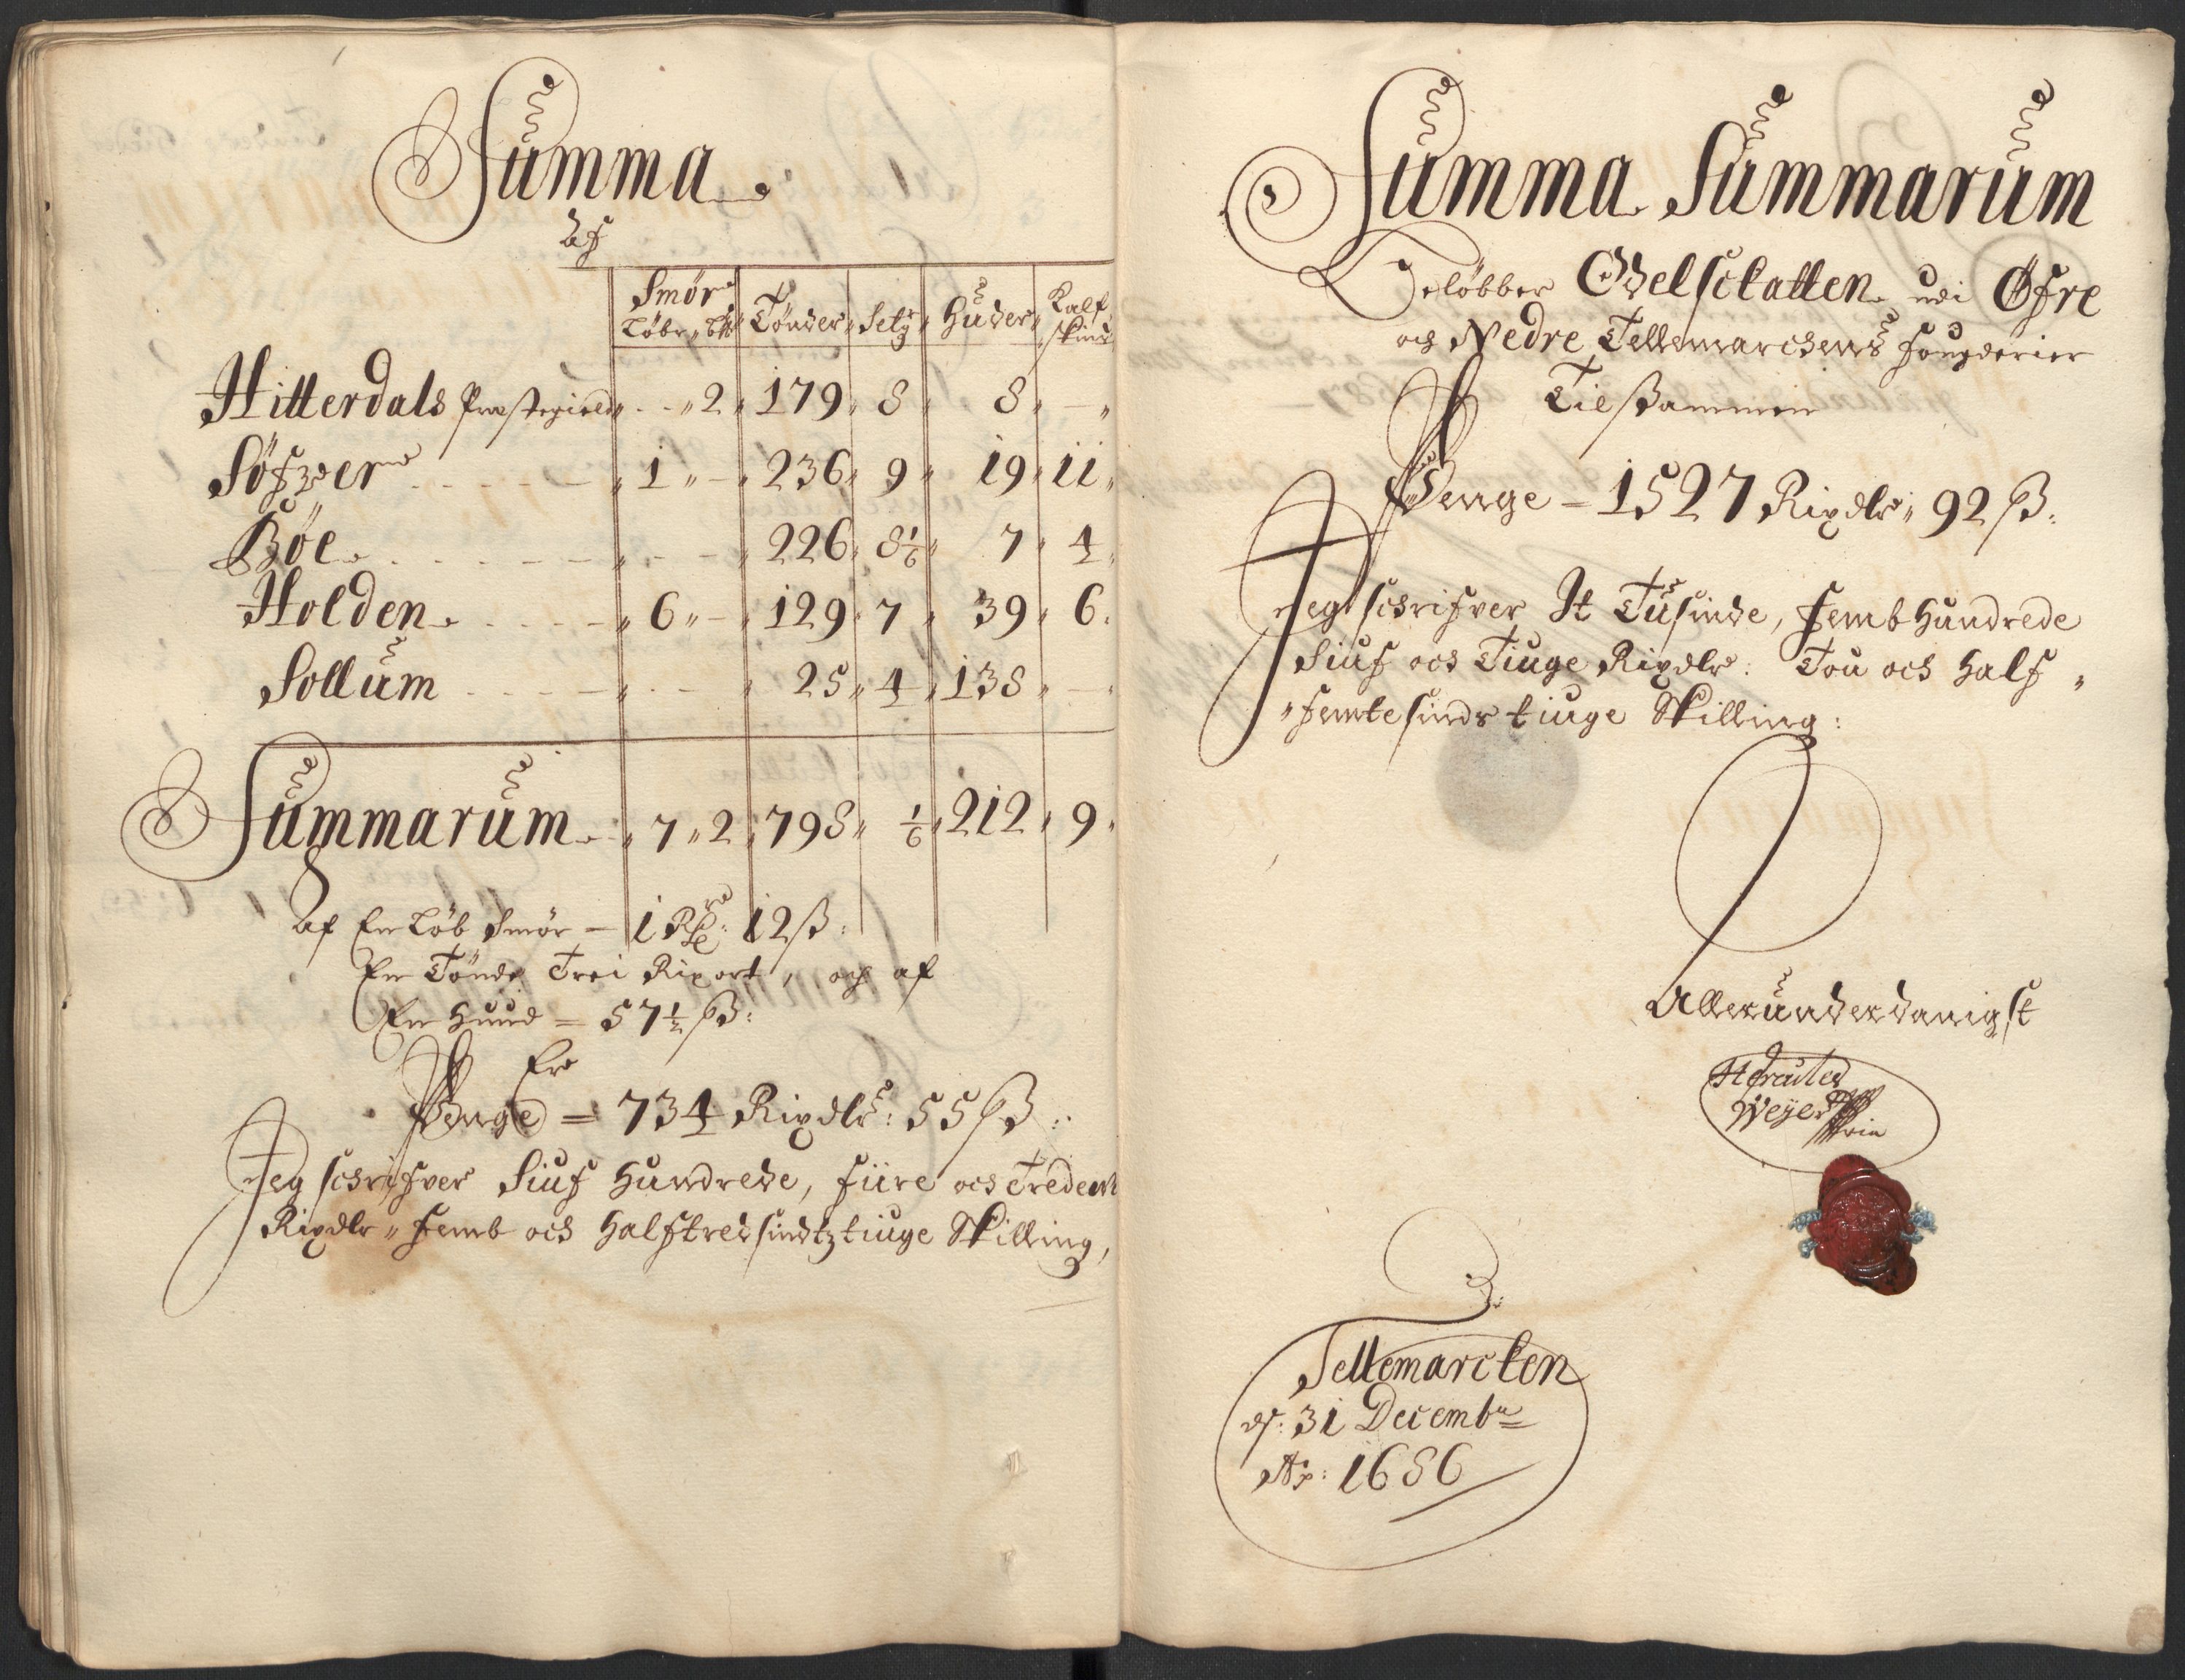 Summa
af
Smør Tønder Setg Huder Kalf
Løbr " skind
Hitterdals Præstegield " - - " 2 " 179 " 8 " 8 " - "
Søfzder " 1 " - " 236 " 9 " 19 " 11 "
Bøe " - - " 226 " 8 1/6 " 7 " 4 "
Holden " 6 " - " 129 " 7 " 39 " 6 "
Sollum " - - " 25 " 4 " 138 " - "
Summarum " 7 " 2 " 798 " 1/6 " 212 " 9 "
af En Løb Smør - 1 Rdr: 12 ß:
En Tønde Trei Rixort, och af
En Huud = 57 1/2 ß:
Er
Penge = 734 Rixdlr: 55 ß:
Jeg schrifver Siuf Hundrede, fiire och Trede
Rixdlr " femb och Halftredsindtztiuge Skilling,
Summa Summarum
Beløbber Odelschatten udi Øfre
och Nedre Tellemarchens fougderier
Tilsammen
Penge = 1527 Rixdlr " 92 ß:
Jeg schrifver It Tusinde, femb Hundrede
Siuf och Tiuge Rixdlr: Tou och half "
" femtesinds tiuge Skilling:
Allerunderdanigst
Hercules
Weyer
Tellemarcken
d: 31 Decembr
Ao: 1686